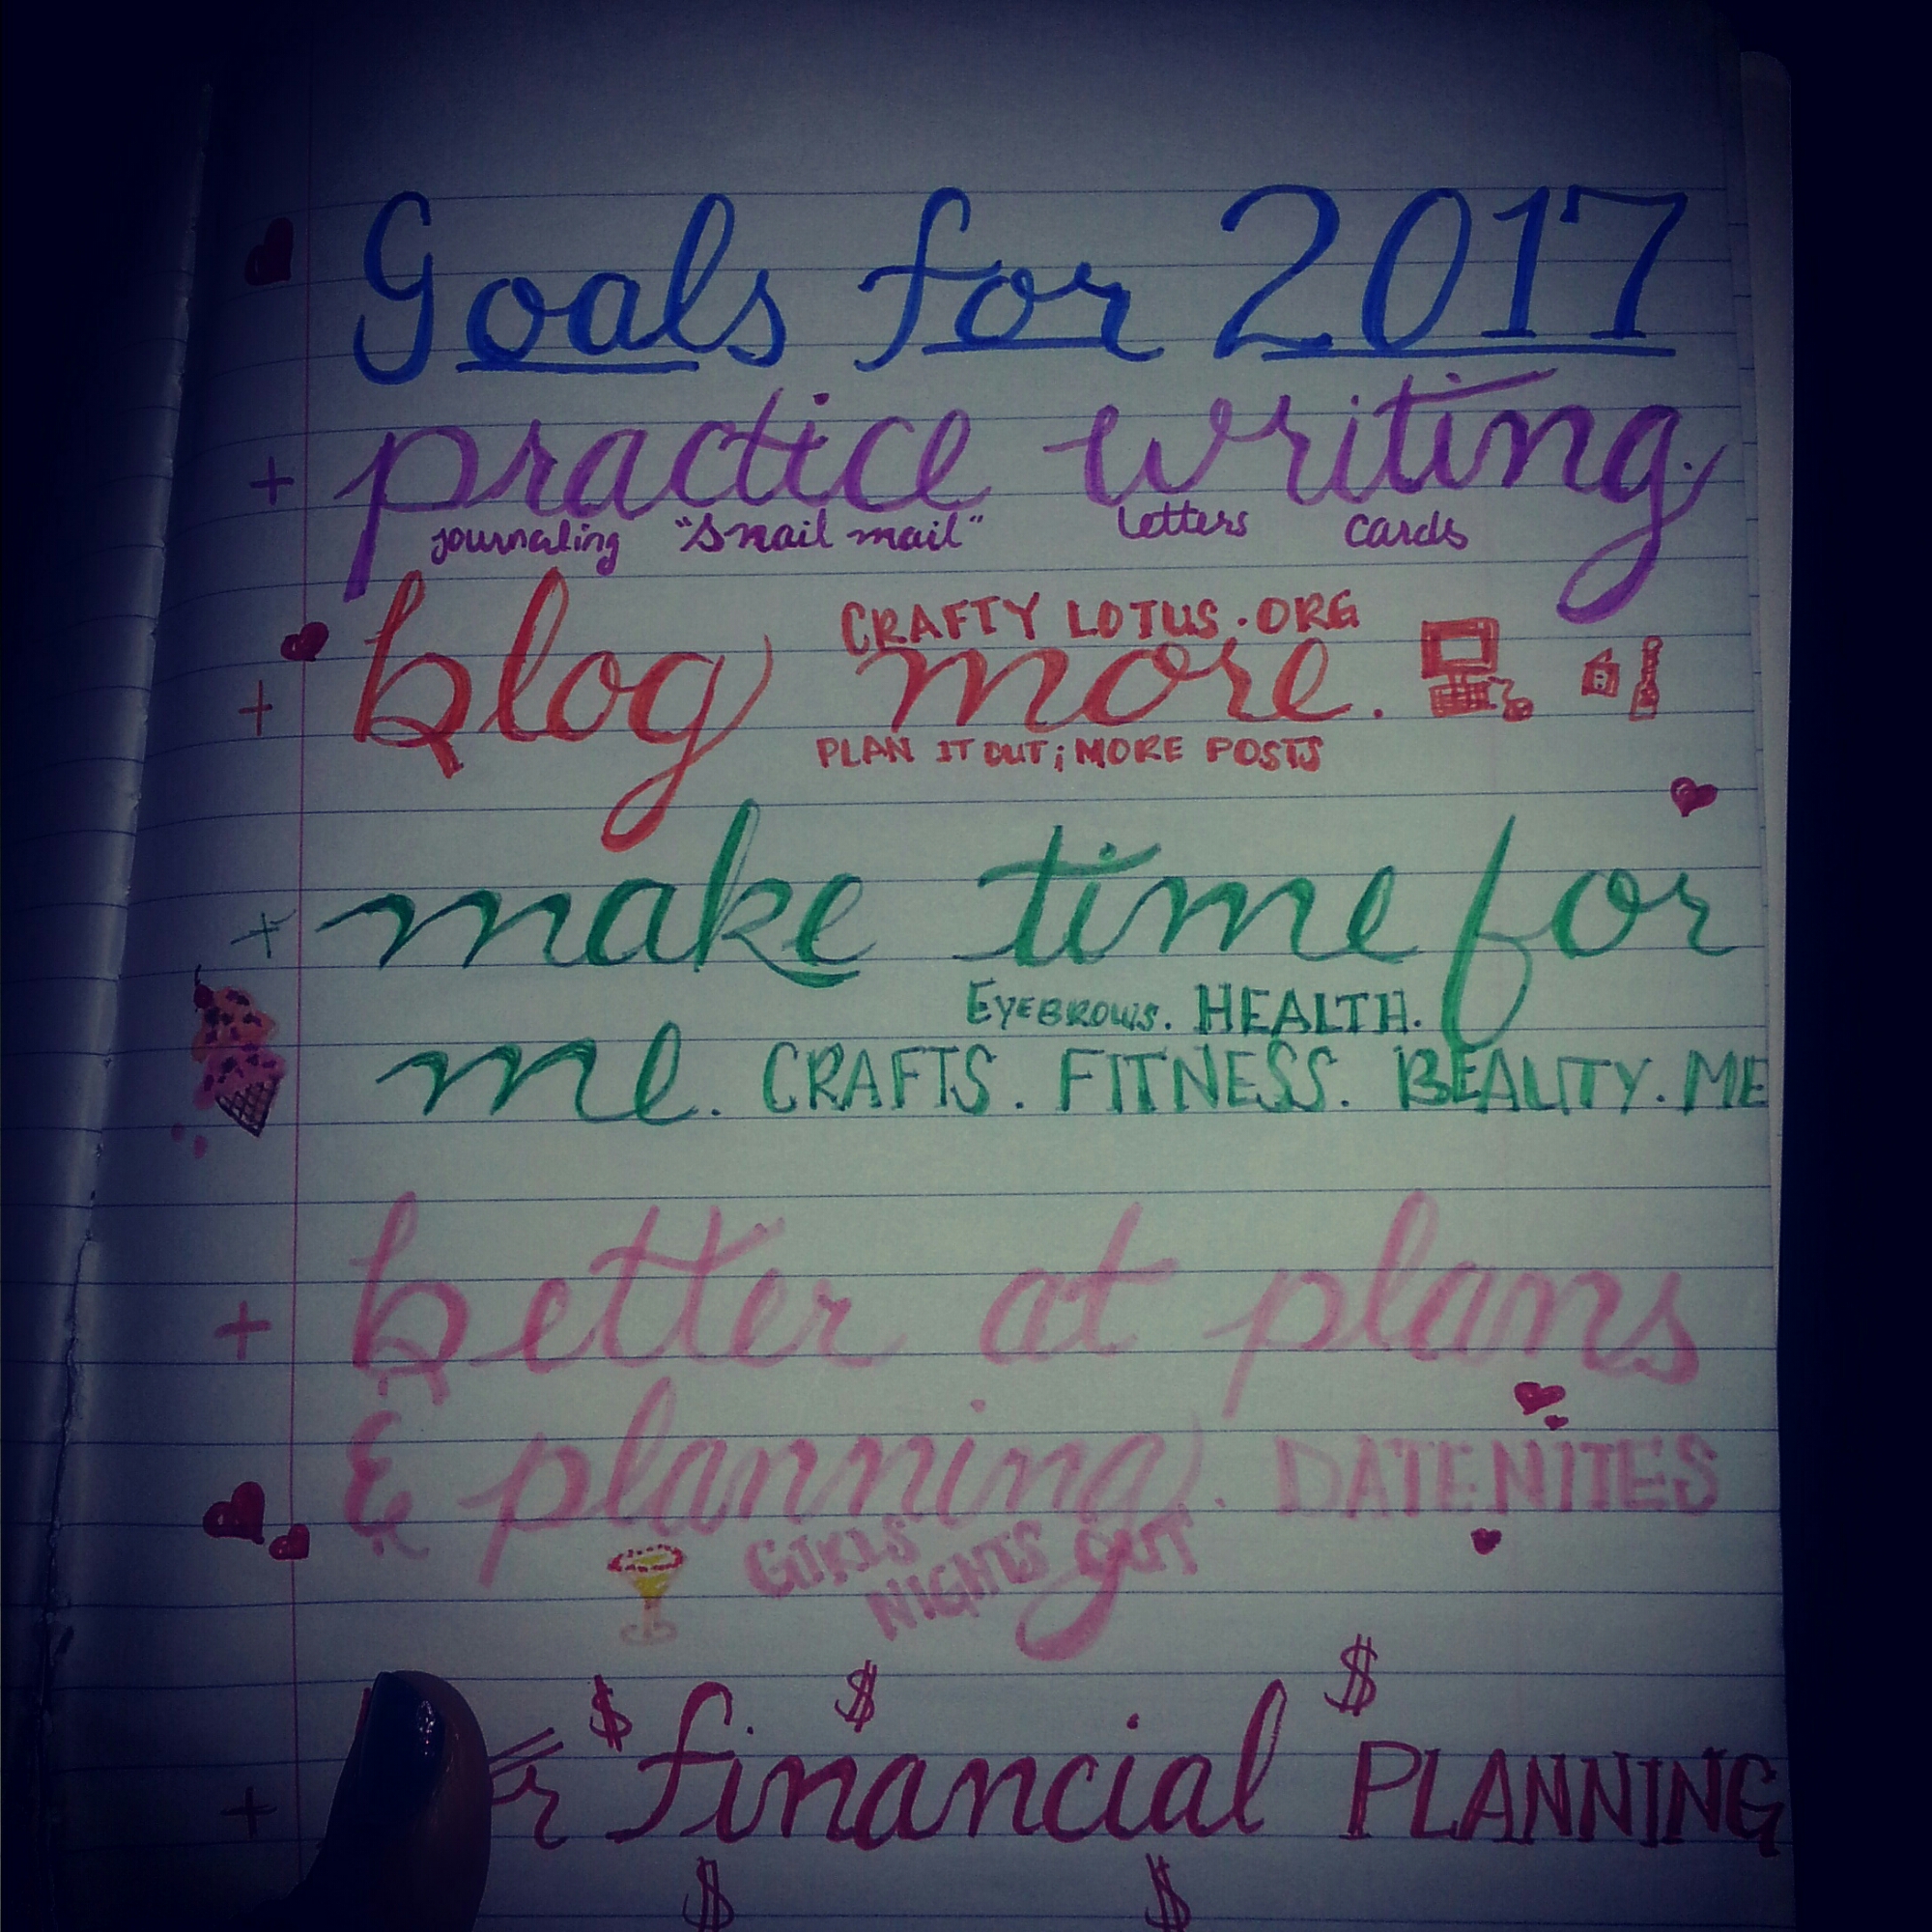 Goals for 2017
+ practice writing.
journaling "Snail mail" letters cards
CRAFTY LOTUS.ORG
+ blog more.
PLAN IT OUT; MORE POSTS
+ make time for
EYEBROWS. HEALTH.
me. CRAFTS. FITNESS. BEAUTY. ME
+ better at plans
& planning. DATE NITES
GIRLS
NIGHTS OUT
$ $ $
+ financial PLANNING
$ $